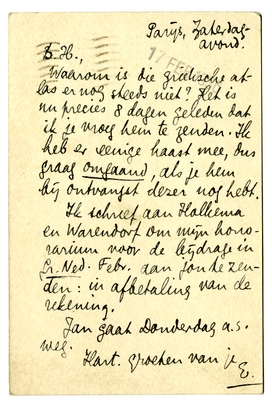 Parijs, Zaterdag-
avond.
17 FEB
B.H.,
Waarom is die grieksche at-
las er nog steeds niet? Het is
nu precies 8 dagen geleden dat
ik je vroeg hem te zenden. Ik
heb er eenige haast mee, dus
graag omgaand, als je hem
bij ontvangst dezer nog hebt.
Ik schrijf aan Halkema
en Warendorf om mijn hono-
rarium voor de bijdrage in
Gr. Ned. Febr. aan jou te zen-
den: in afbetaling van de
rekening.
Jan gaat Donderdag a.s.
weg.
Hart. groeten van je
E.